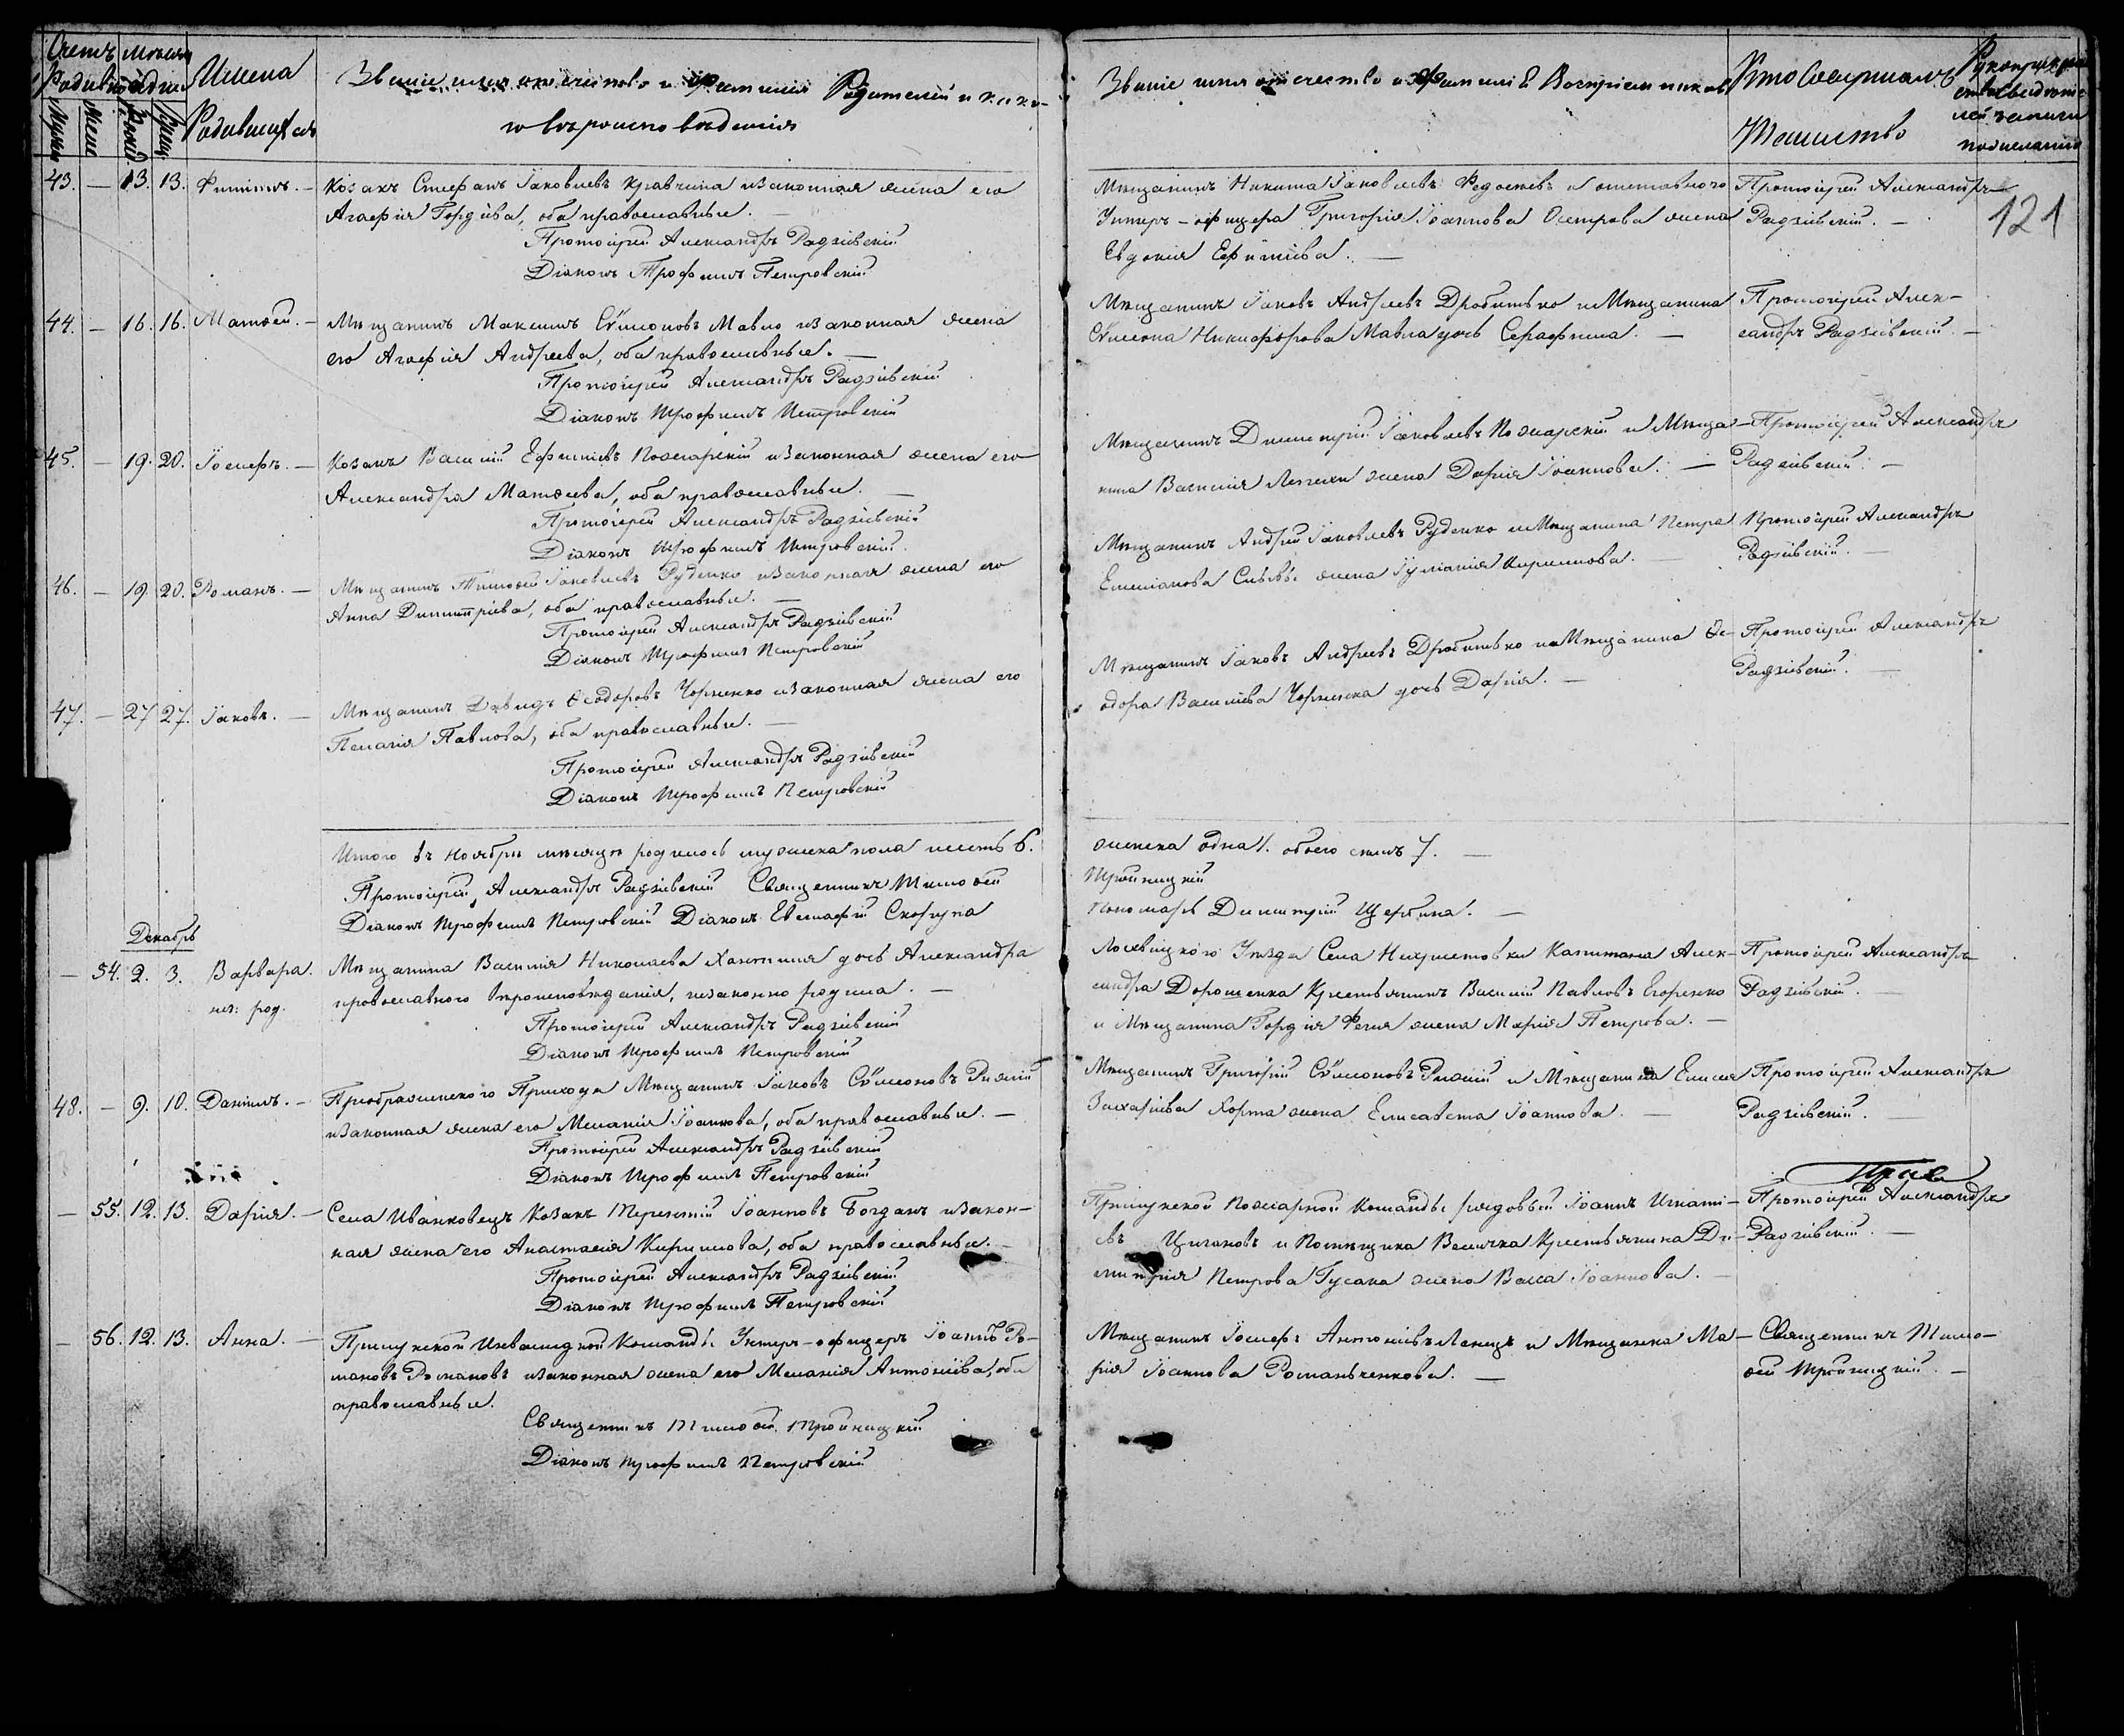 Счетъ Родившихся
Мужск. Женск.
Месяцъ и день
Рожд. Крещ.
Имена
Родившихся
Званіе имя отчество и фамилія Родителей и како-
го вѣроисповѣданія
Званіе имя отчество и фамилія Воспріемниковъ
Кто Совершалъ
Таинство
Рукоприкладство свидѣтелей записи по желанію
121
43. — 13. 13. Филипъ. — Козакъ Стефанъ Іаковлевъ Кравчина и законная жена его
Агафія Гордіева, оба православные. —
Протоіерей Александръ Радзіевскій
Діаконъ Трофимъ Петровскій
Мѣщанинъ Никита Іаковлевъ и отставного
Унтеръ-офицера Григорія Іоаннова Острова жена
Евдокія Ефиміева. —
Протоіерей Александръ
Радзіевскій. —
44. — 16. 16. Матѳей. — Мѣщанинъ Максимъ Сѵмоновъ Мавло и законная жена
его Агафія Андреева, оба православные. —
Протоіерей Александръ Радзіевскій
Діаконъ Трофимъ Петровскій
Мѣщанинъ Іаковъ Андреевъ Дробитько и Мѣщанина
Сѵмеона Никифорова Мавла дочь Серафима. —
Протоіерей Алек-
сандръ Радзіевскій. —
45. — 19. 20. Іосифъ. — Козакъ Василій Ефиміевъ Пожарскій и законная жена его
Александра Матѳеева, оба православные. —
Протоіерей Александръ Радзіевскій
Діаконъ Трофимъ Петровскій.
Мѣщанинъ Димитрій Іаковлевъ Пожарскій и Мѣща-
нина Василія жена Дарія Іоаннова. —
Протоіерей Александръ
Радзіевскій. —
46. — 19. 20. Романъ. — Мѣщанинъ Тимоѳей Іаковлевъ Руденко и законная жена его
Анна Димитріева, оба православные. —
Протоіерей Александръ Радзіевскій
Діаконъ Трофимъ Петровскій
Мѣщанинъ Андрей Іаковлевъ Руденко и Мѣщанина Петра
Емеліанова жена Іуліанія Кириллова. —
Протоіерей Александръ
Радзіевскій. —
47. — 27. 27. Іаковъ. — Мѣщанинъ Давидъ Ѳеодоровъ Чорненко и законная жена его
Пелагія Павлова, оба православные. —
Протоіерей Александръ Радзіевскій
Діаконъ Трофимъ Петровскій
Мѣщанинъ Іаковъ Андреевъ Дробитько и Мѣщанина Ѳе-
одора Василіева Чорненка дочь Дарія. —
Протоіерей Александръ
Радзіевскій. —
Итого въ Ноябрѣ мѣсяцѣ родилось мужеска пола шесть 6.
женска одна 1. обоего семь 7. —
Протоіерей Александръ Радзіевскій Священникъ Тимоѳей
Тройницкій
Діаконъ Трофимъ Петровскій Діаконъ Евстафій Скорупа
Пономарь Димитрій Щербина. —
Декабрь
— 54. 2. 3. Варвара.
нез: род.
Мѣщанина Василія Николаева дочь Александра
православного вѣроисповѣданія, незаконно родила. —
Протоіерей Александръ Радзіевскій
Діаконъ Трофимъ Петровскій
Лохвицкого Уѣзда Села Капитана Алек-
сандра Дорошенка Крестьянинъ Василій Павловъ Егоренко
и Мѣщанина Гордія жена Марія Петрова. —
Протоіерей Александръ
Радзіевскій. —
48. — 9. 10. Даніилъ. — Преображенского Прихода Мѣщанинъ Іаковъ Сѵмоновъ Рижій
и законная жена его Меланія Іоаннова, оба православные. —
Протоіерей Александръ Радзіевскій
Діаконъ Трофимъ Петровскій
Мѣщанинъ Григорій Сѵмоновъ Рижій и Мѣщанина
Захаріева Хорта жена Елисавета Іоаннова. —
Протоіерей Александръ
Радзіевскій.
— 55. 12. 13. Дарія. — Села Иванковецъ Козакъ Терентій Іоанновъ Богданъ и закон-
ная жена его Анастасія Кириллова, оба православные. —
Протоіерей Александръ Радзіевскій
Діаконъ Трофимъ Петровскій
Прилукской Пожарной Команды рядовый Іоаннъ Игнаті-
евъ Цигановъ и Помѣщика Велычка Крестьянина Ди-
митрія Петрова Гусака жена Васса Іоаннова. —
Протоіерей Александръ
Радзіевскій. —
— 56. 12. 13. Анна. — Прилукской Инвалидной Команды Унтеръ-офицеръ Іоаннъ Ро-
мановъ Романовъ и законная жена его Меланія Антоніева, оба
православные.
Священникъ Тимоѳей Тройницкій
Діаконъ Трофимъ Петровскій
Мѣщанинъ Іосифъ Антоніевъ и Мѣщанка Ма-
рія Іоаннова Романьченкова. —
Священникъ Тимо-
ѳей Тройницкій. —